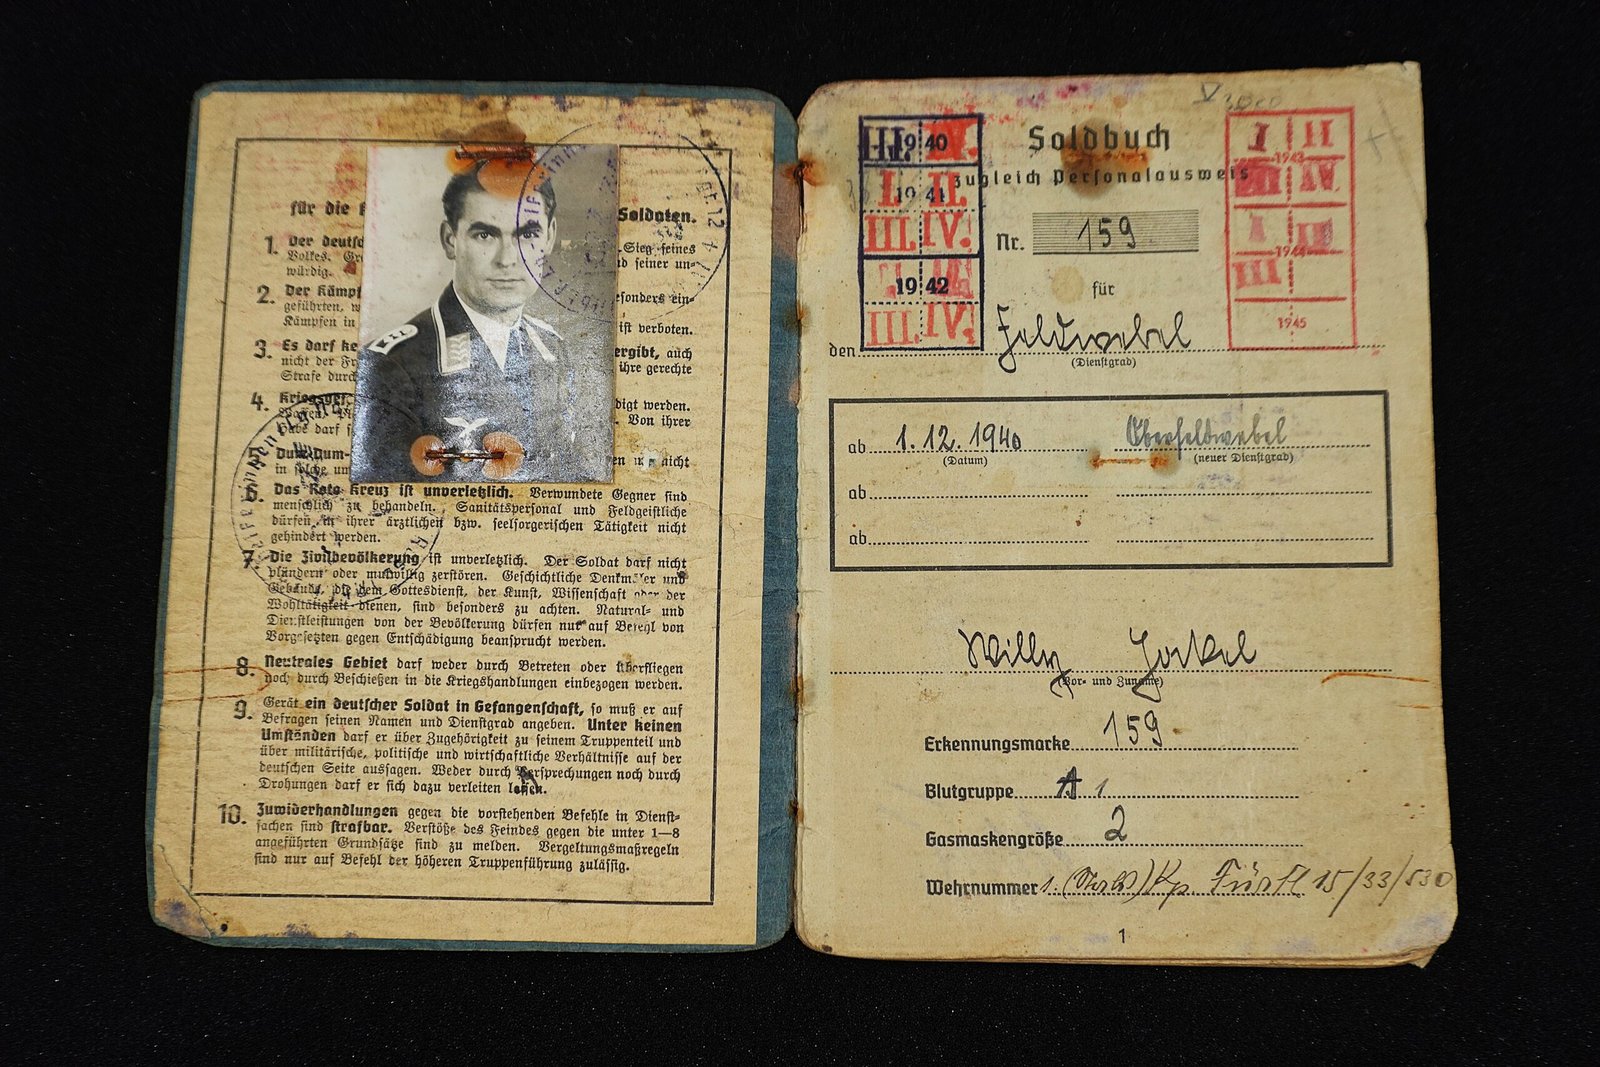 für die
Soldaten.
1. Der deutsc
Sieg seines
Volkes. Gr
nd seiner un-
würdig.
2. Der Kämpf
esonders ein-
geführten, w
Kämpfen in
ist verboten.
3. Es darf ke
ergibt, auch
nicht der Fr
ihre gerechte
Strafe durc
4. Kriegsgef.
digt werden.
Von ihrer
Habe darf s
5. Dum-Dum-
nicht
in solche um
6. Das Rote Kreuz ist unverletzlich. Verwundete Gegner sind
menschlich zu behandeln. Sanitätspersonal und Feldgeistliche
dürfen in ihrer ärztlichen bzw. seelsorgerischen Tätigkeit nicht
gehindert werden.
7. Die Zivilbevölkerung ist unverletzlich. Der Soldat darf nicht
plündern oder mutwillig zerstören. Geschichtliche Denkmäler und
Gebäude, die dem Gottesdienst, der Kunst, Wissenschaft oder der
Wohltätigkeit dienen, sind besonders zu achten. Natural- und
Dienstleistungen von der Bevölkerung dürfen nur auf Befehl von
Vorgesetzten gegen Entschädigung beansprucht werden.
8. Neutrales Gebiet darf weder durch Betreten oder Überfliegen
noch durch Beschießen in die Kriegshandlungen einbezogen werden.
9. Gerät ein deutscher Soldat in Gefangenschaft, so muß er auf
Befragen seinen Namen und Dienstgrad angeben. Unter keinen
Umständen darf er über Zugehörigkeit zu seinem Truppenteil und
über militärische, politische und wirtschaftliche Verhältnisse auf der
deutschen Seite aussagen. Weder durch Versprechungen noch durch
Drohungen darf er sich dazu verleiten lassen.
10. Zuwiderhandlungen gegen die vorstehenden Befehle in Dienst-
sachen sind strafbar. Verstöße des Feindes gegen die unter 1—8
angeführten Grundsätze sind zu melden. Vergeltungsmaßregeln
sind nur auf Befehl der höheren Truppenführung zulässig.
III. 1940 IV.
I. 1941 II.
III. IV.
I. 1942 II.
III. IV.
Soldbuch
zugleich Personalausweis
Nr. 159
für
den Feldwebel
(Dienstgrad)
I II
1943
III IV
I II
1944
III
1945
ab 1.12.1940 Oberfeldwebel
(Datum) (neuer Dienstgrad)
ab
ab
Willy
(Vor- und Zuname)
Erkennungsmarke 159
Blutgruppe A
Gasmaskengröße 2
Wehrnummer 15/33/530
1